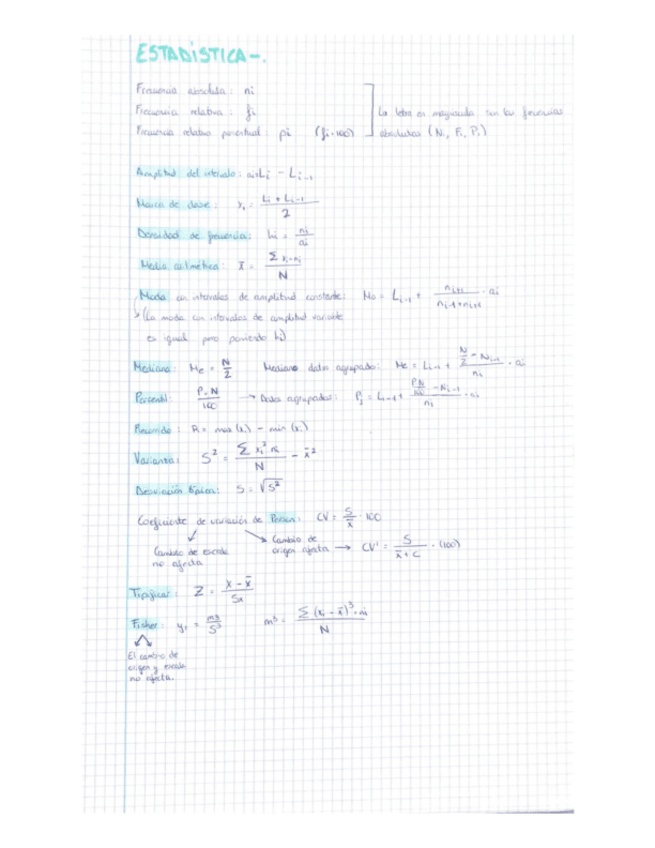 ESTADÍSTICA-.
Frecuencia absoluta: ni
Frecuencia relativa: fi
Frecuencia relativa porcentual: pi (fi·100)
La letra en mayúscula son las frecuencias
absolutas (Ni, Fi, Pi)
Amplitud del intervalo: ai=Li - Li-1
Marca de clase: xi = (Li + Li-1)/2
Densidad de frecuencia: hi = ni/ai
Media aritmética: x̄ = Σ xi·ni / N
Moda con intervalos de amplitud constante: Mo = Li-1 + ni+1/(ni-1+ni+1) · ai
(La moda con intervalos de amplitud variable
es igual pero poniendo hi)
Mediana: Me = N/2 Mediana datos agrupados: Me = Li-1 + (N/2 - Ni-1)/ni · ai
Percentil: P·N/100 → Datos agrupados: Pj = Li-1 + (PN/100 - Ni-1)/ni · ai
Recorrido: R = max (xi) - min (xi)
Varianza: S² = Σ xi² ni / N - x̄²
Desviación típica: S = √S²
Coeficiente de variación de Pearson: CV = S/x̄ · 100
Cambio de escala
no afecta
Cambio de
origen afecta → CV' = S/(x̄ + C) · (100)
Tipificar: Z = (X - x̄)/Sx
Fisher: γ1 = m3/S³ m3 = Σ (xi - x̄)³ · ni / N
El cambio de
origen y escala
no afecta.